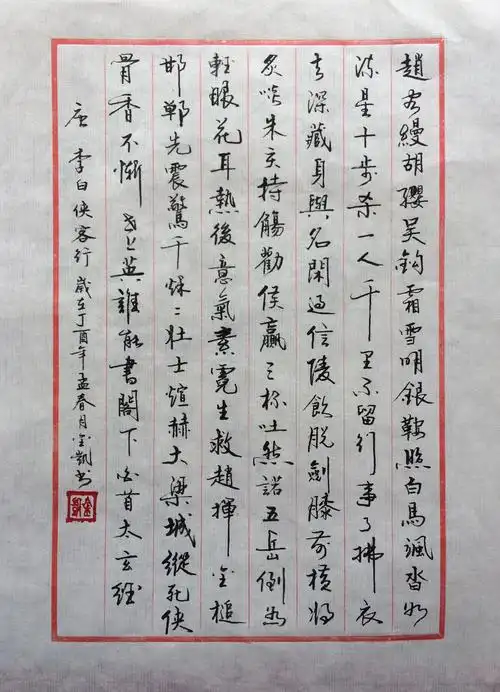 趙客縵胡纓吳鈎霜雪明銀鞍照白馬颯沓如
流星十步杀一人千里不留行事了拂衣
去深藏身與名閑過信陵飲脫劍膝前橫將
炙啖朱亥持觴勸侯嬴三杯吐然諾五岳倒為
輕眼花耳熱後意氣素霓生救趙揮金槌
邯鄲先震驚千秋二壯士煊赫大梁城縱死俠
骨香不慚世上英誰能書閣下白首太玄經
唐 李白俠客行 歲在丁酉年孟春月金凱書
金凱